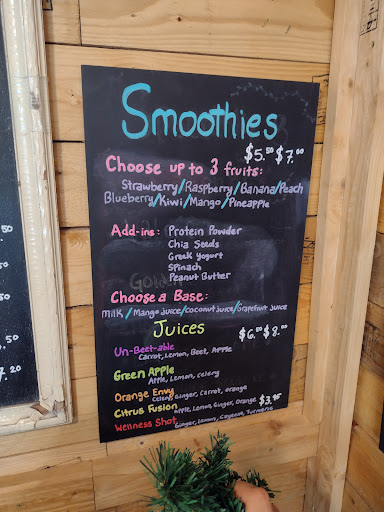 Smoothies
$5.50 $7.00
Choose up to 3 fruits:
Strawberry/Raspberry/Banana/Peach
Blueberry/Kiwi/Mango/Pineapple
Add-ins: Protein Powder
Chia Seeds
Greek Yogurt
Spinach
Peanut Butter
Choose a Base:
Milk/Mango juice/coconut juice/Grapefruit juice
Juices $6.00 $8.00
Un-Beet-able
Carrot, Lemon, Beet, Apple
Green Apple
Apple, Lemon, celery
Orange Envy
Celery, Ginger, Carrot, Orange
Citrus Fusion
Apple, Lemon, Ginger, Orange $3.95
Wellness Shot Ginger, lemon, Cayenne, Turmeric
50
50
7.20